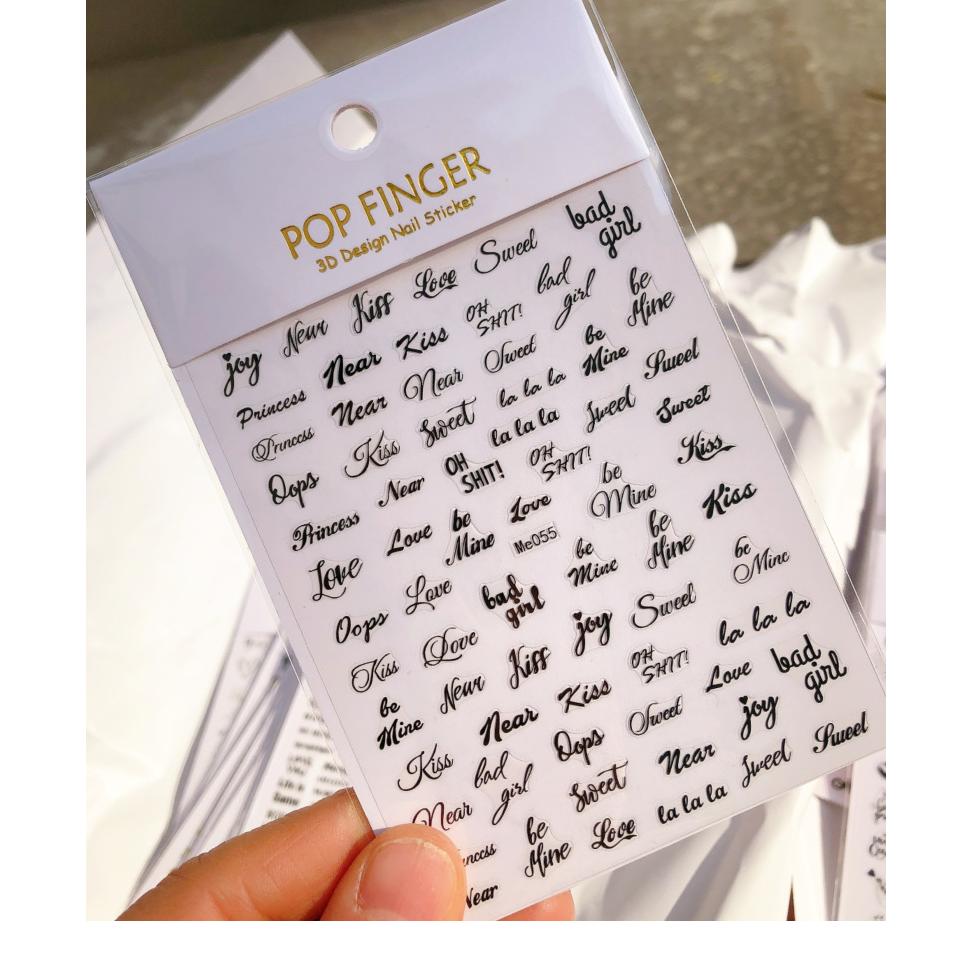 POP FINGER
3D Design Nail Sticker
joy Near Kiss Love Sweet bad girl
Princess Near Kiss OH SHIT! bad girl be Mine
Princess Near Near Sweet be Mine Sweet
Oops Kiss Sweet la la la
la la la Sweet Sweet
Princess Near OH SHIT! OH SHIT! Kiss
Love Love be Mine Love be Mine Kiss
Me055
Oops Love bad girl be Mine be Mine be Mine
Kiss Love Kiss joy Sweet la la la
be Mine Near Near Kiss OH SHIT! Love bad girl
Kiss bad girl Oops Sweet joy
Near Sweet Near Sweet Sweet
be Mine Love la la la
Near